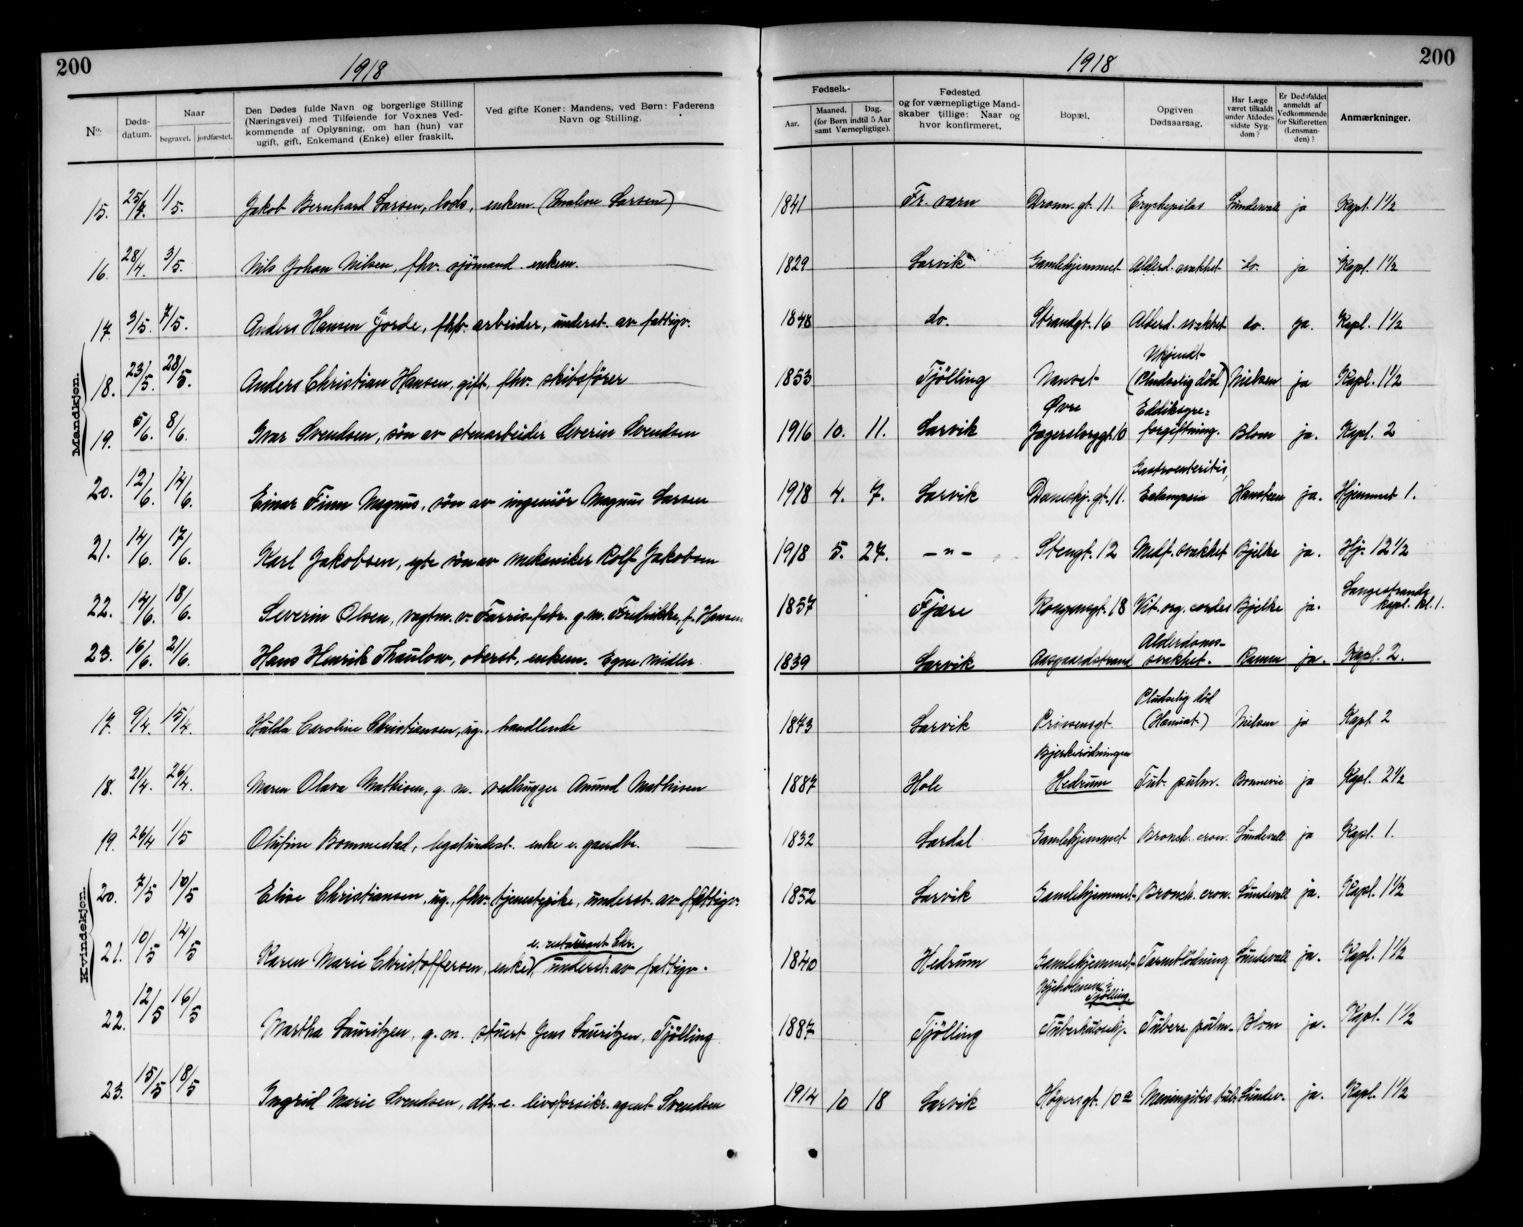 200
1918
1918
200
No.
Døds-datum.
Naar
begravet. jordfæstet.
Den Dødes fulde Navn og borgerlige Stilling (Næringsvei) med Tilføiende for Voxnes Vedkommende af Oplysning, om han (hun) var ugift, gift, Enkemand (Enke) eller fraskilt.
Ved gifte Koner: Mandens, ved Børn: Faderens Navn og Stilling.
Fødsels-
Aar.
Maaned. Dag.
(for Børn indtil 5 Aar samt Værnepligtige).
Fødested og for værnepligtige Mandskaber tillige: Naar og hvor konfirmeret.
Bopæl.
Opgiven Dødsaarsag.
Har Læge været tilkaldt under Afdødes sidste Sygdom?
Er Dødsfaldet anmeldt af Vedkommende for Skifteretten (Lensmanden)?
Anmærkninger.
Mandkjøn.
15. 25/4. 1/5. Jakob Bernhard Larsen, lods, enkem. (Emaline Larsen) 1841 Fr. værn Dronn. gt. 11. Eryshepilas Sundevall ja Kapl. 1 1/2
16. 28/4. 3/5. Nils Johan Nilsen, fhv. sjömand. enkem. 1829 Larvik Gamlehjemmet Alderd. svakhet do. ja Kapl. 1 1/2
17. 3/5. 7/5. Anders Hansen Jorde, fhv. arbeider, underst. av fattigv. 1848 do. Strandgt. 16 Alderd. svakhet do. ja. Kapl. 1 1/2
18. 23/5. 28/5. Anders Christian Hansen, gift, fhv. skibsfører 1853 Tjölling Nanset Ukjendt (Pludselig död) Nielsen ja Kapl. 1 1/2
19. 5/6. 8/6. Ivar Svendsen, sön av stenarbeider Severin Svendsen 1916 10. 11. Larvik Øvre Jegersborggt. 10 Eddiksyre= forgiftning. Blom ja. Kapl. 2
20. 12/6. 14/6. Einar Finn Magnus, sön av ingeniör Magnus Larsen 1918 4. 7. Larvik Daneskj. gt. 11. Gastroenteritis, Eclampsia Hansteen ja. Hjemmet 1.
21. 14/6. 17/6. Karl Jakobsen, egte sön av mekaniker Rolf Jakobsen 1918 5. 27. -"- Stengt. 12 Medf. svakhet Bjelke ja. Hj. 12 1/2
22. 14/6. 18/6. Severin Olsen, vagtm. v. Farris-fabr. g. m. Fredrikke, f. Hansen 1857 Fjære Kongensgt. 18 Vit. org. cordis Bjelke ja. Langestrands kapl. kl. 1.
23. 16/6. 21/6. Hans Henrik Thaulow, oberst, enkem. Egne midler. 1839 Larvik Aasgaardstrand Alderdoms-svakhet. ja. Kapl. 2.
Kvindekjøn.
17. 9/4. 15/4. Hulda Caroline Christiansen, ug., handlende 1873 Larvik Prinsensgt. Pludselig död Nielsen ja Kapl. 2
18. 21/4. 26/4. Maren Olava Mathisen, g. m. vedhugger Amund Mathisen 1887 Hole Bjerkerödningen Hedrum Tub. pulm. Bonnevie ja Kapl. 2 1/2
19. 26/4 1/5 Olufine Bommestad, legatunderst. enke e. gaardbr. 1832 Lardal Gamlehjemmet Bronch. cron. Sundevall ja Kapl. 1.
20. 7/5 10/5 Elise Christiansen, ug., fhv. tjenestepike, underst. av fattigv. 1852 Larvik Gamlehjemmet Bronch. cron. Sundevall ja. Kapl. 1 1/2
21. 10/5 14/5 Karen Marie Christoffersen, enke e. restaurant Chr. underst. av fattigv. 1840 Hedrum Gamlehjemmet Tarmblödning Sundevall ja. Kapl. 1 1/2
22. 12/5 16/5 Martha Lauritzen, g. m. stuert Jens Lauritzen, Tjölling 1887 Tjölling Tjölling Tuberkulosehj. Tuberc. pulm. Blom ja. Kapl. 1 1/2
23. 15/5 18/5 Ingrid Marie Svendsen, dtr. e. livsforsikr. agent Svendsen 1914 10 18 Larvik Høgersgt. 10a Meningitis tub. Sundev. ja. Kapl. 1 1/2